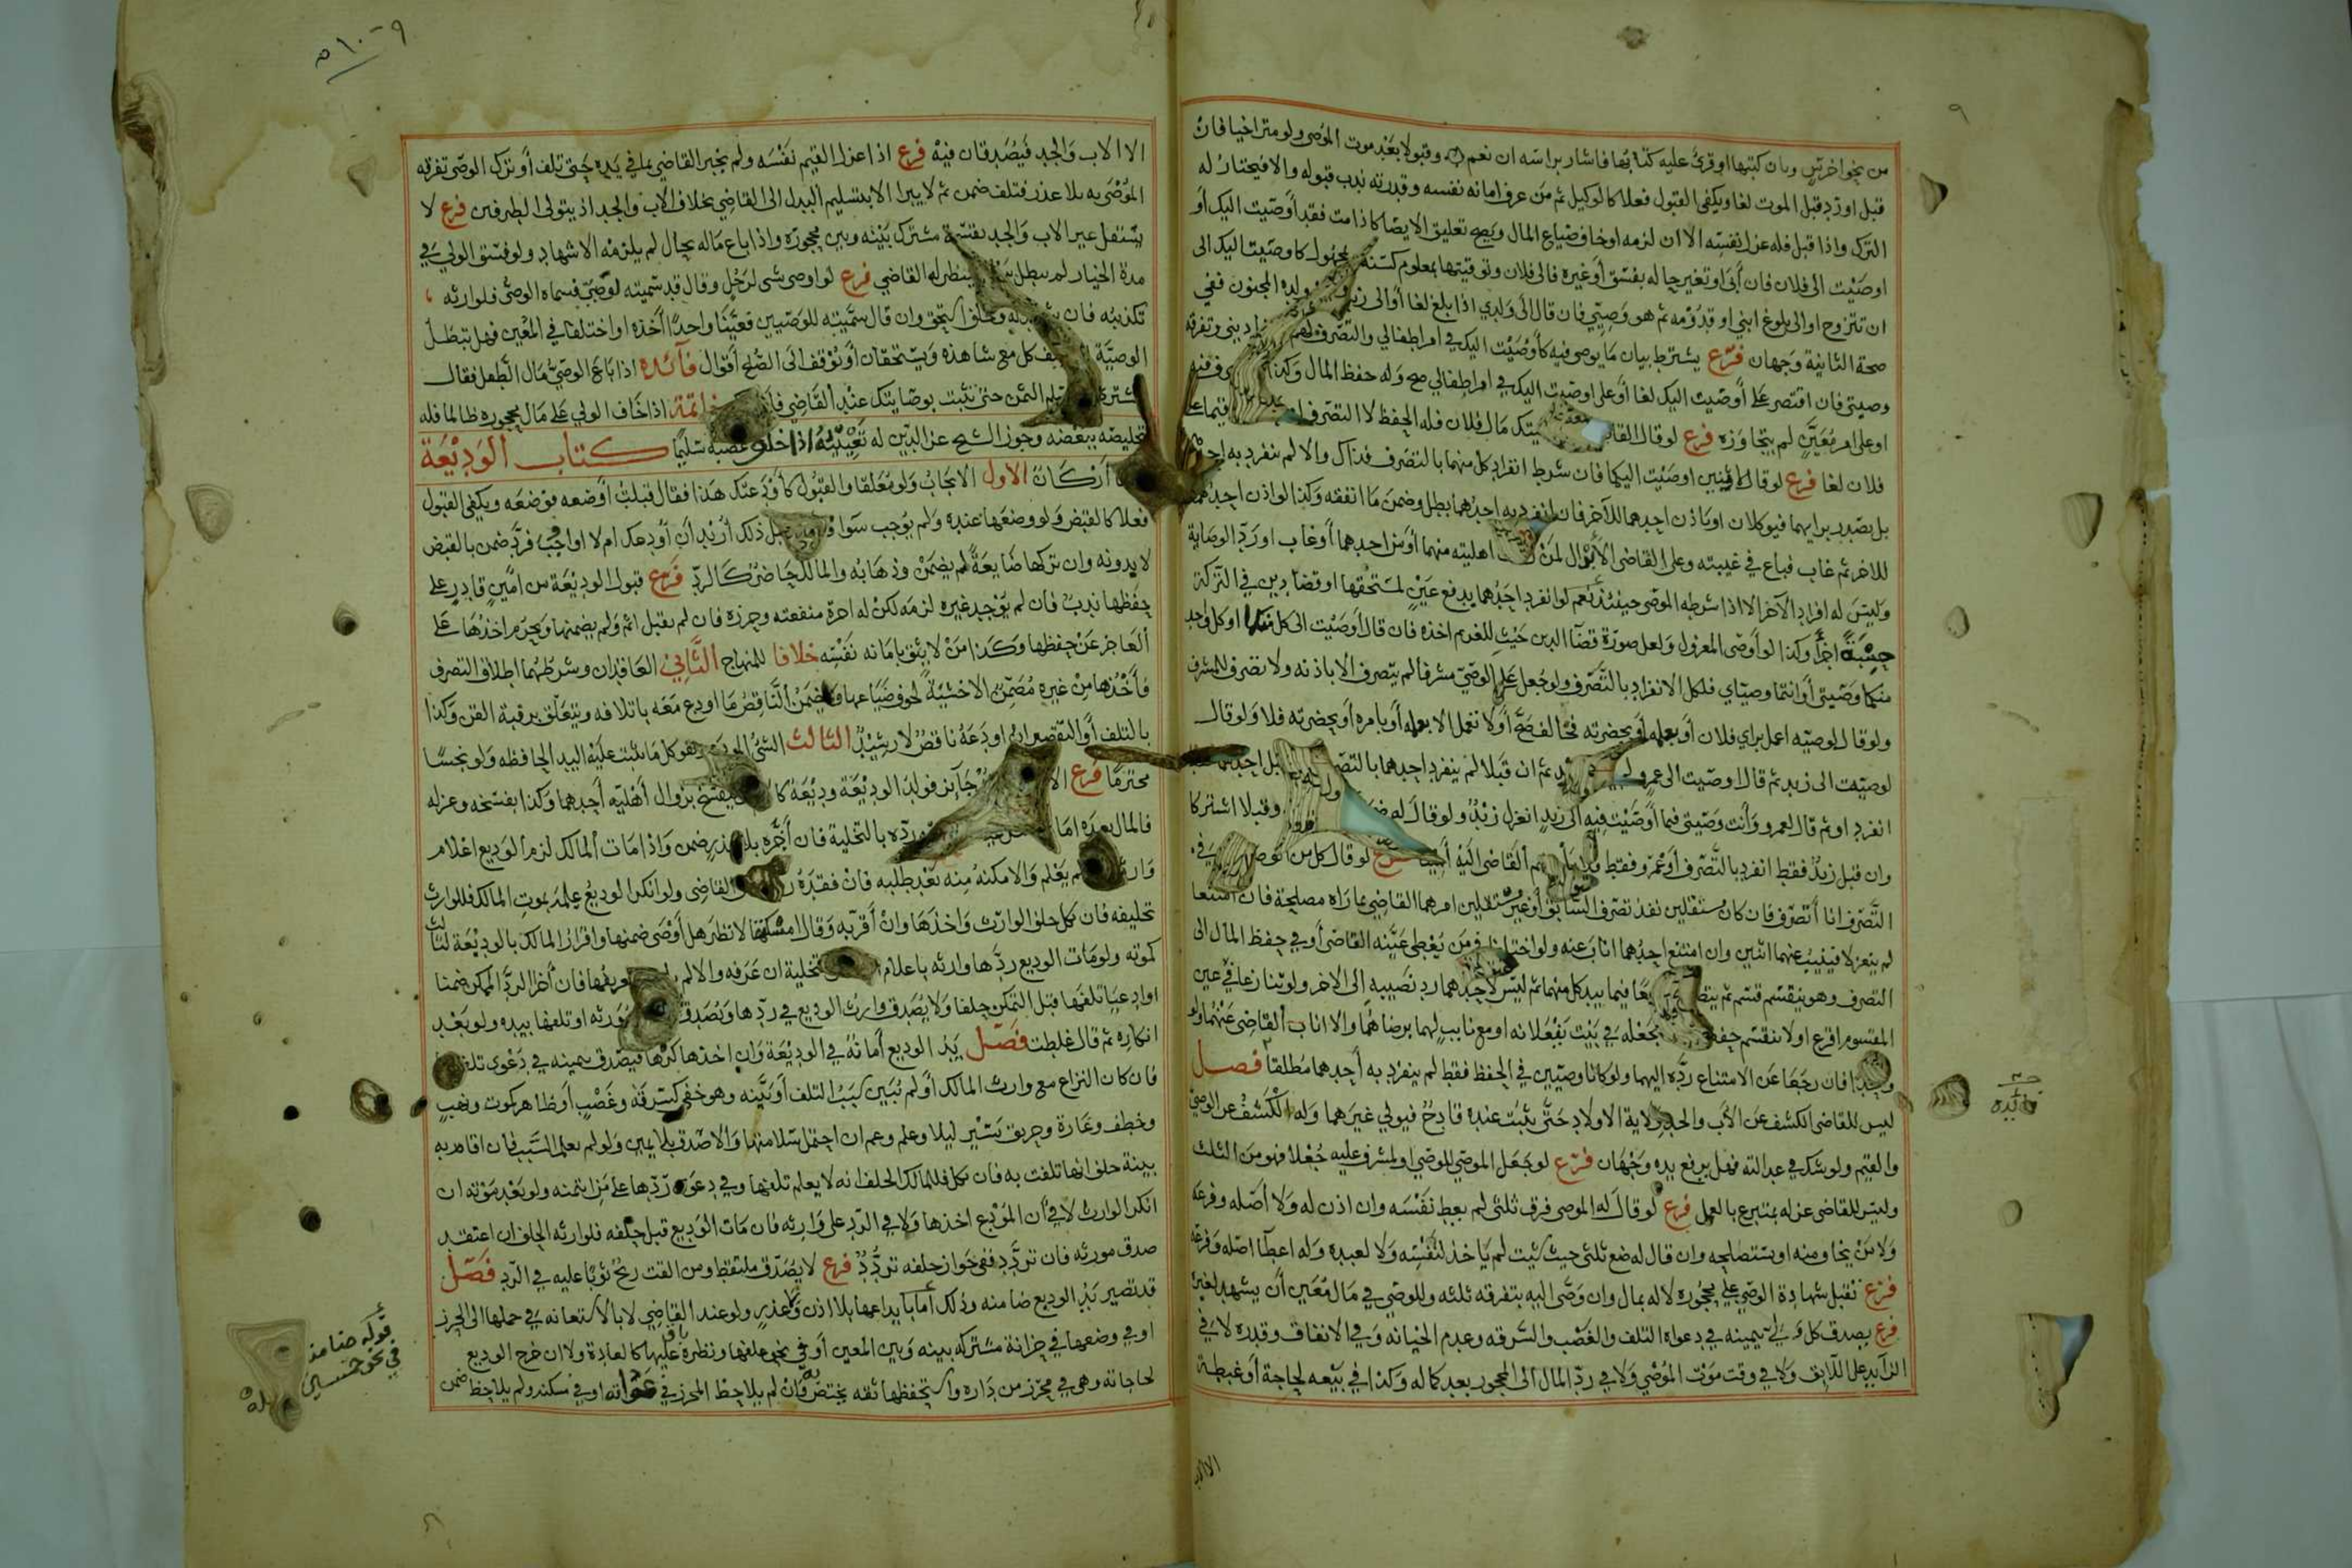 من نحو اخرس وبان كتبها او قرئ عليه كتابها فاشار براسه ان نعم وقبولا بعد موت الموصى ولو متراخيا فان
قبل او رد قبل الموت لغا ويكفى القبول فعلا كالوكيل ثم من عرف امانة نفسه وقدرته ندب قبوله والا فيختار له
الترك واذا قبل فله عزل نفسه الا ان لزمه او خاف ضياع المال ويصح تعليق الايصا كاذا مت فقد اوصيت اليك او
اوصيت الى فلان فان أبى او تغير حاله بفسق أو غيره فالى فلان وتوقيتها بمعلوم كسنة مجهول كاوصيت اليك الى
ان تتزوج او الى بلوغ ابني او قدومه ثم هو وصيتي فان قال الى ولدي اذا بلغ لغا أو الى زيد ولده المجنون ففي
صحة الثانية وجهان فرع يشترط بيان ما يوصى فيه كأوصيت اليك في امر اطفالي والتصرف لهم ديني وتفرقة
وصيتى فان اقتصر على أوصيت اليك لغا أو على اوصيت اليك في امر اطفالي صح وله حفظ المال وكذا
او على امر معين لم يتجاوزه فرع لو قال القا مال فلان فله الحفظ لا التصرف
فلان لغا فرع لو قال لاثنين اوصيت اليكما فان شرط انفراد كل منهما بالتصرف فذاك والا لم ينفرد به احدهما
بل يصدر برايهما فيوكلان او ياذن احدهما للآخر فان انفرد به احدهما بطل وضمن ما انفقه وكذا لو اذن احدهما
للاخر ثم غاب فباع في غيبته وعلى القاضى الابدال لمن اهليته منهما أو من احدهما أو غاب او رد الوصاية
وليس له افراد الآخر الا اذا شرطه الموصى حينئذ نعم لو انفرد احدهما بدفع عين لمستحقها او قضا دين في التركة
جنسه اجزأ وكذا لو أوصى المعزول ولعل صورة قضا الدين حيث للغريم اخذه فان قال أوصيت الى كل منكما او كل واحد
منكما وصيتى أو انتما وصياي فلكل الانفراد بالتصرف ولو جعل على الوصى مشرفا لم يتصرف الا باذنه ولا تصرف للمشرف
ولو قال لوصيه اعمل براي فلان أو بعلمه أو بحضرته فخالف صح أو لا تعمل الا بعلمه أو بامره أو بحضرته فلا ولو قال
لوصيت الى زيد ثم قال اوصيت الى عمرو ثم ان قبلا لم ينفرد احدهما بالتصرف
انفرد او ثم قال لعمرو وأنت وصيتى فيما أوصيت فيه الى زيد انعزل زيد ولو قال له وقبلا اشتركا
وان قبل زيد فقط انفرد بالتصرف أو عمرو فقط القاضى اليه لو قال كل من
التصرف انا أتصرف فان كانا مستقلين نفذ تصرف السابق أو غير مستقلين امرهما القاضي بما رآه مصلحة فان امتنعا
لم ينعزلا فينيب عنهما اثنين وان امتنع احدهما اناب عنه ولو اختلفا فيمن يعطى عينه القاضى أو في حفظ المال الى
التصرف وهو ينقسم قسم ثم فيما بيد كل منهما ثم ليس لاحدهما رد نصيبه الى الاخر ولو تنازعا في عين
المقسوم اقرع او لا ينقسم حفظ بجعله في بيت بقفلانه او مع نايب لهما برضاهما والا اناب القاضى عنهما
فان رجعا عن الامتناع رده اليهما ولو كانا وصيين في الحفظ فقط لم ينفرد به أحدهما مطلقا فصل
ليس للقاضى الكشف عن الأب والجد ولاية الاولاد حتى يثبت عنده قادح فيولي غيرهما وله الكشف عن الوصي
والقيم ولو شك في عدالته فهل يرفع يده وجهان فرع لو جعل الموصي للوصي او لمشرف عليه جعلا فهو من الثلث
وليس للقاضى عزله بمتبرع بالعمل فرع لو قال له الموصى فرق ثلثى لم يعط نفسه وان اذن له ولا أصله وفرعه
ولا من يخاف منه او يستصلحه وان قال له ضع ثلثى حيث رئيت لم ياخذ لنفسه ولا لعبده وله اعطا اصله وفرعه
فرع تقبل شهادة الوصى على محجوره لا له بمال وان وصى اليه بتفرقة ثلثه وللوصي في مال معين أن يشهد لغيره
فرع يصدق كل ولي بيمينه في دعواه التلف والغصب والسرقة وعدم الخيانة وفي الانفاق وقدره لا في
الزايد على اللايق ولا في وقت موت الموصي ولا في رد المال الى المحجور بعد كماله وكذا في بيعه لحاجة أو غبطة
الا الاب
فائدة
٥١٠٠٩
الا الاب والجد فيصدقان فيه فرع اذا عزل القيم نفسه ولم يخبر القاضي بما في يده حتى تلف أو ترك الوصي تفرقة
الموصى به بلا عذر فتلف ضمن ثم لا يبرا الا بتسليم البدل الى القاضي بخلاف الاب والجد اذ يتولى الطرفين فرع لا
يستقل غير الاب والجد بقسمة مشترك بينه وبين محجوره واذا باع ماله بحال لم يلزمه الاشهاد ولو فسق الولي في
مدة الخيار لم يبطل ينظر له القاضي فرع لو اوصى بشى لرجل وقال قد سميته لوصيي فسماه الوصى فلوارثه
تكذيبه فان وحلف استحق وان قال سميته للوصيين فعينا واحدا أخذه او اختلفا في المعين فهل تبطل
الوصية كل مع شاهده ويستحقان أو توقف الى الصلح أقوال فآئدة اذا باع الوصى مال الطفل فقال
الثمن حتى تثبت بوصايتك عند القاضي خاتمة اذا خاف الولي على مال محجوره ظالما فله
تخليصه ببعضه وجوز الشيخ عز الدين له تعييبه اذا خاف غصبه سليما كتاب الوديعة
أركان الاول الايجاب ولو معلقا والقبول كأودعتك هذا فقال قبلت أو ضعه فوضعه ويكفى القبول
فعلا كالقبض ولو وضعها عنده ولم يوجب سوا قبل ذلك أريد أن أودعك ام لا او اوجب فرد ضمن بالقبض
لا بدونه وان تركها ضايعة لم يضمن وذهابه والمالك حاضر كالرد فرع قبول الوديعة من امين قادر على
حفظها ندب فان لم يوجد غيره لزمه لكن له اجرة منفعته وحرزه فان لم يقبل اثم ولم يضمنها ويحرم اخذها على
العاجز عن حفظها وكذا من لا يثق بامانة نفسه خلافا للمنهاج الثاني العاقدان وشرطهما اطلاق التصرف
فأخذها من غيره مضمن الا خشية لخوف ضياعها ويضمن الناقص ما اودع معه باتلافه ويتعلق برقبة القن وكذا
بالتلف أو التقصير ان اودعه ناقص لا رشيد الثالث الشئ المودع وهو كل ما تثبت عليه اليد الحافظة ولو نجسا
محترما فرع جآئز فولد الوديعة وديعة كا بزوال أهلية أحدهما وكذا بفسخه وعزله
فالمال بيده ورده بالتخلية فان أخره بلا عذر ضمن واذا مات المالك لزم الوديع اعلام
يعلم والا مكنه منه بعد طلبه فان فقده القاضى ولو انكر الوديع علمه بموت المالك فللوارث
تحليفه فان نكل حلف الوارث واخذها وان أقر به وقال امسكتها لانظر هل أوصى ضمنها واقرار المالك بالوديعة لثالث
كموته ولو مات الوديع ردها وارثه باعلام تخلية ان عرفه والا لم فان أخر الرد الممكن ضمنا
او ادعيا تلفها قبل التمكن حلفا ولا يصدق وارث الوديع في ردها ويصدق مورثه او تلفها بيده ولو بعد
انكاره ثم قال غلطت فصل يد الوديع أمانة في الوديعة وان اخذها كرها فيصدق بيمينه في دعوى
فان كان النزاع مع وارث المالك او لم يبين سبب التلف أو بينه وهو خفي كسرقة وغصب أو ظاهر كموت ونهب
وخطف وغارة وحريق يسير ليلا وعلم وعم ان احتمل سلامتها والا صدق بلا يمين ولو لم يعلم السبب فان اقام به
بينة حلف انها تلفت به فان نكل فللمالك الحلف انه لا يعلم تلفها وفي دعوى ردها على من ايتمنه ولو بعد موته ان
انكر الوارث لا في أن المودع اخذها ولا في الرد على وارثه فان مات الوديع قبل حلفه فلوارثه الحلف ان اعتقد
صدق مورثه فان تردد ففي جواز حلفه تردد فرع لا يصدق ملتقط ومن القت ريح ثوبا عليه في الرد فصل
قد تصير يد الوديع ضامنه وذلك اما بايداعها بلا اذن وعذر ولو عند القاضي لا بالاستعانة في حملها الى الحرز
او في وضعها في خزانة مشتركة بينه وبين المعين أو في نحو علفها ونظره باق عليها كالعادة ولا ان خرج الوديع
لحاجاته وهي في محرز من داره واستحفظها ثقة يختص به فان لم يلاحظ المحرز في عوانه او في سكنه ولم يلاحظ ضمن
قوله ضامنه
في نحو خمسين